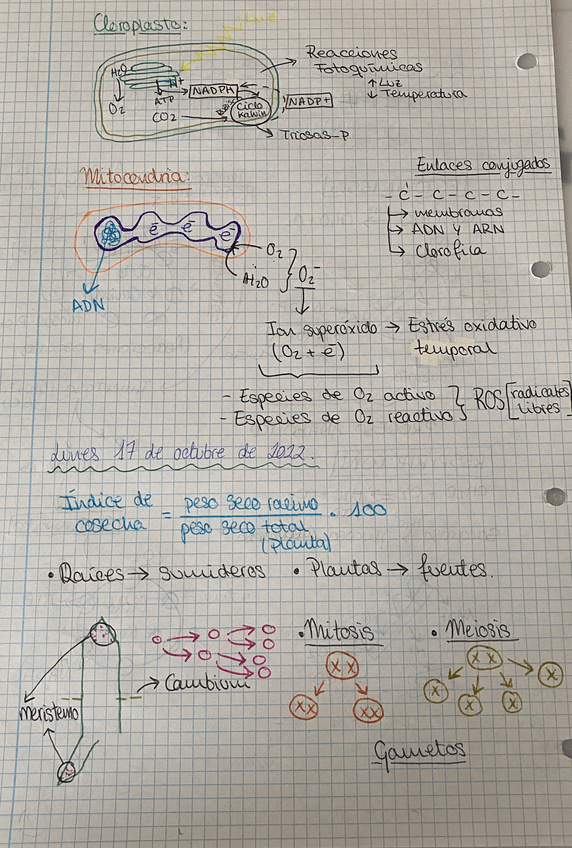 Cloroplasto:
H2O
O2
H+
ATP
NADPH
CO2
Ciclo
Kalvin
NADP+
Triosas-P
Reacciones
Fotoquímicas
↑ Luz
↓ Temperatura
Mitocondria:
e- e- e-
ADN
O2
H2O
O2-
Enlaces conjugados
- C - C - C - C -
membranas
ADN y ARN
Clorofica
Ion superóxido → Estrés oxidativo
(O2 + e-) temporal
- Especies de O2 activo
- Especies de O2 reactivo
ROS [radicales
libres]
Lunes 17 de octubre de 2022.
Índice de cosecha = peso seco racimo / peso seco total · 100
(Planta)
• Raíces → sumideros • Plantas → fuentes.
Meristemo
→ Cambium
• Mitosis
XX
XX XX
• Meiosis
XX
X X X X
Gametos